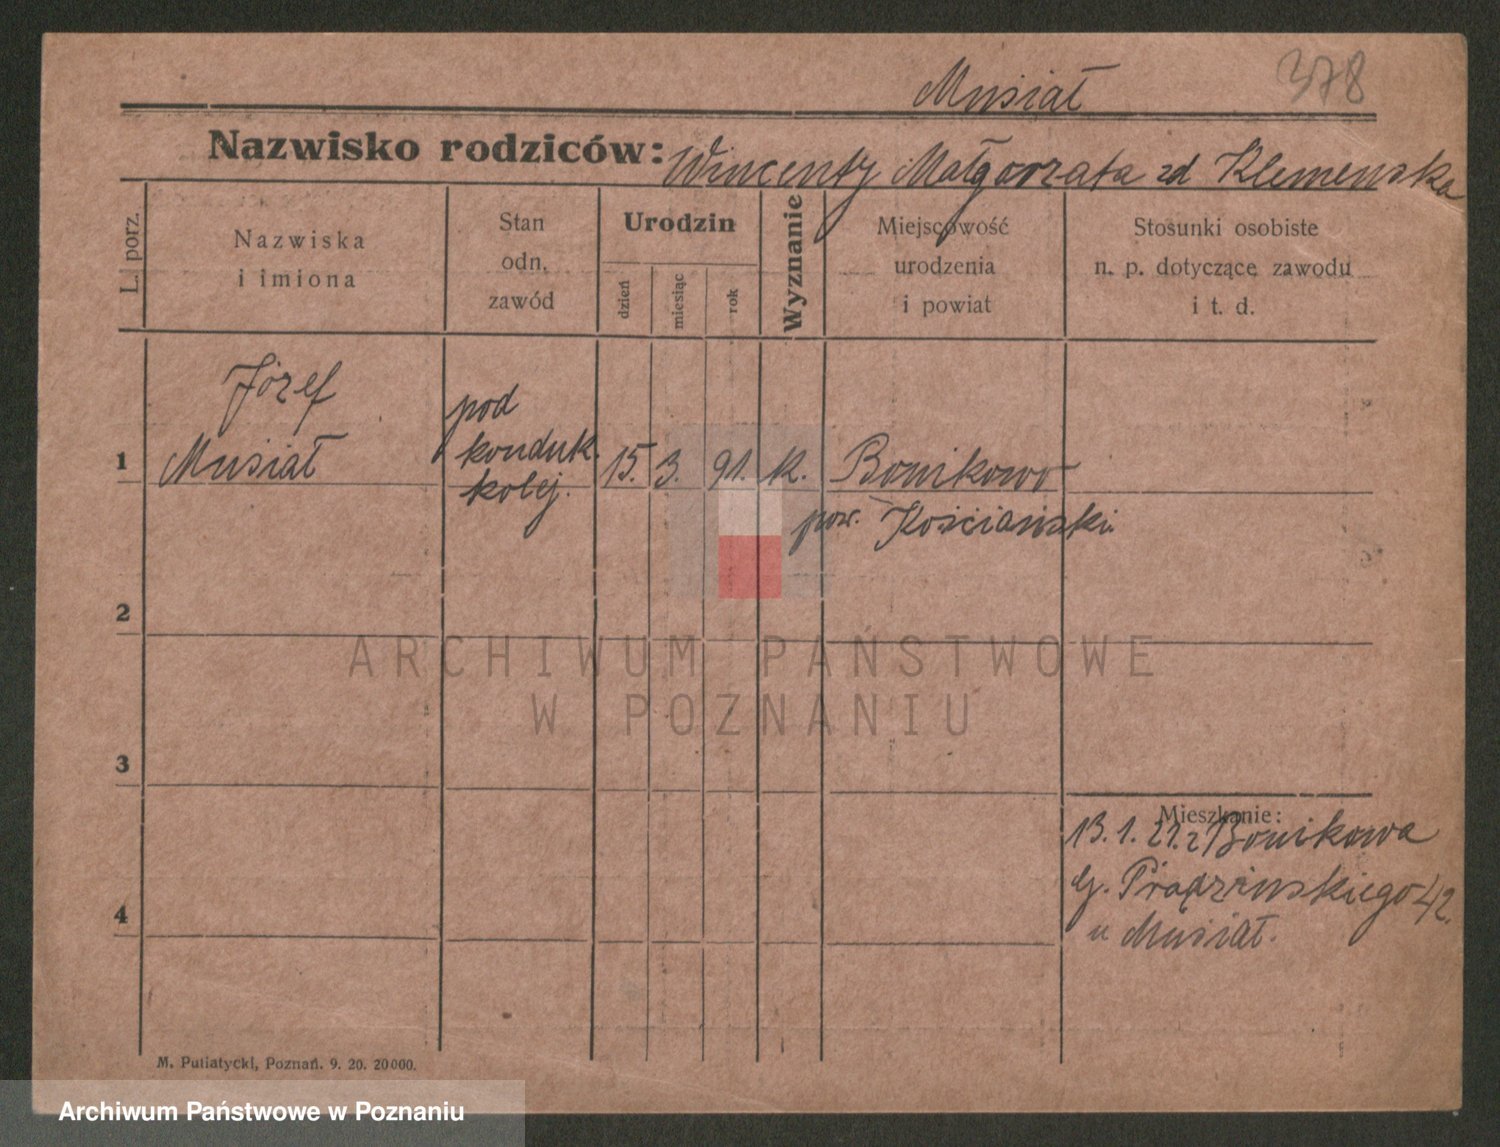 Musiał 378
Nazwisko rodziców: Wincenty Małgorzata zd Klemenska
L. porz.
Nazwiska
i imiona
Stan
odn.
zawód
Urodzin
dzień
miesiąc
rok
Wyznanie
Miejscowość
urodzenia
i powiat
Stosunki osobiste
n. p. dotyczące zawodu
i t. d.
1
Józef
Musiał
pod
konduk.
kolej.
15. 3. 91. k. Bonikowo
pow. Kościański.
2
ARCHIWUM PAŃSTWOWE
W POZNANIU
3
Mieszkanie:
13. 1. 21. z Bonikowa
Prądzinskiego 42.
u Musiał.
4
M. Putiatycki, Poznań. 9. 20. 20000.
Archiwum Państwowe w Poznaniu